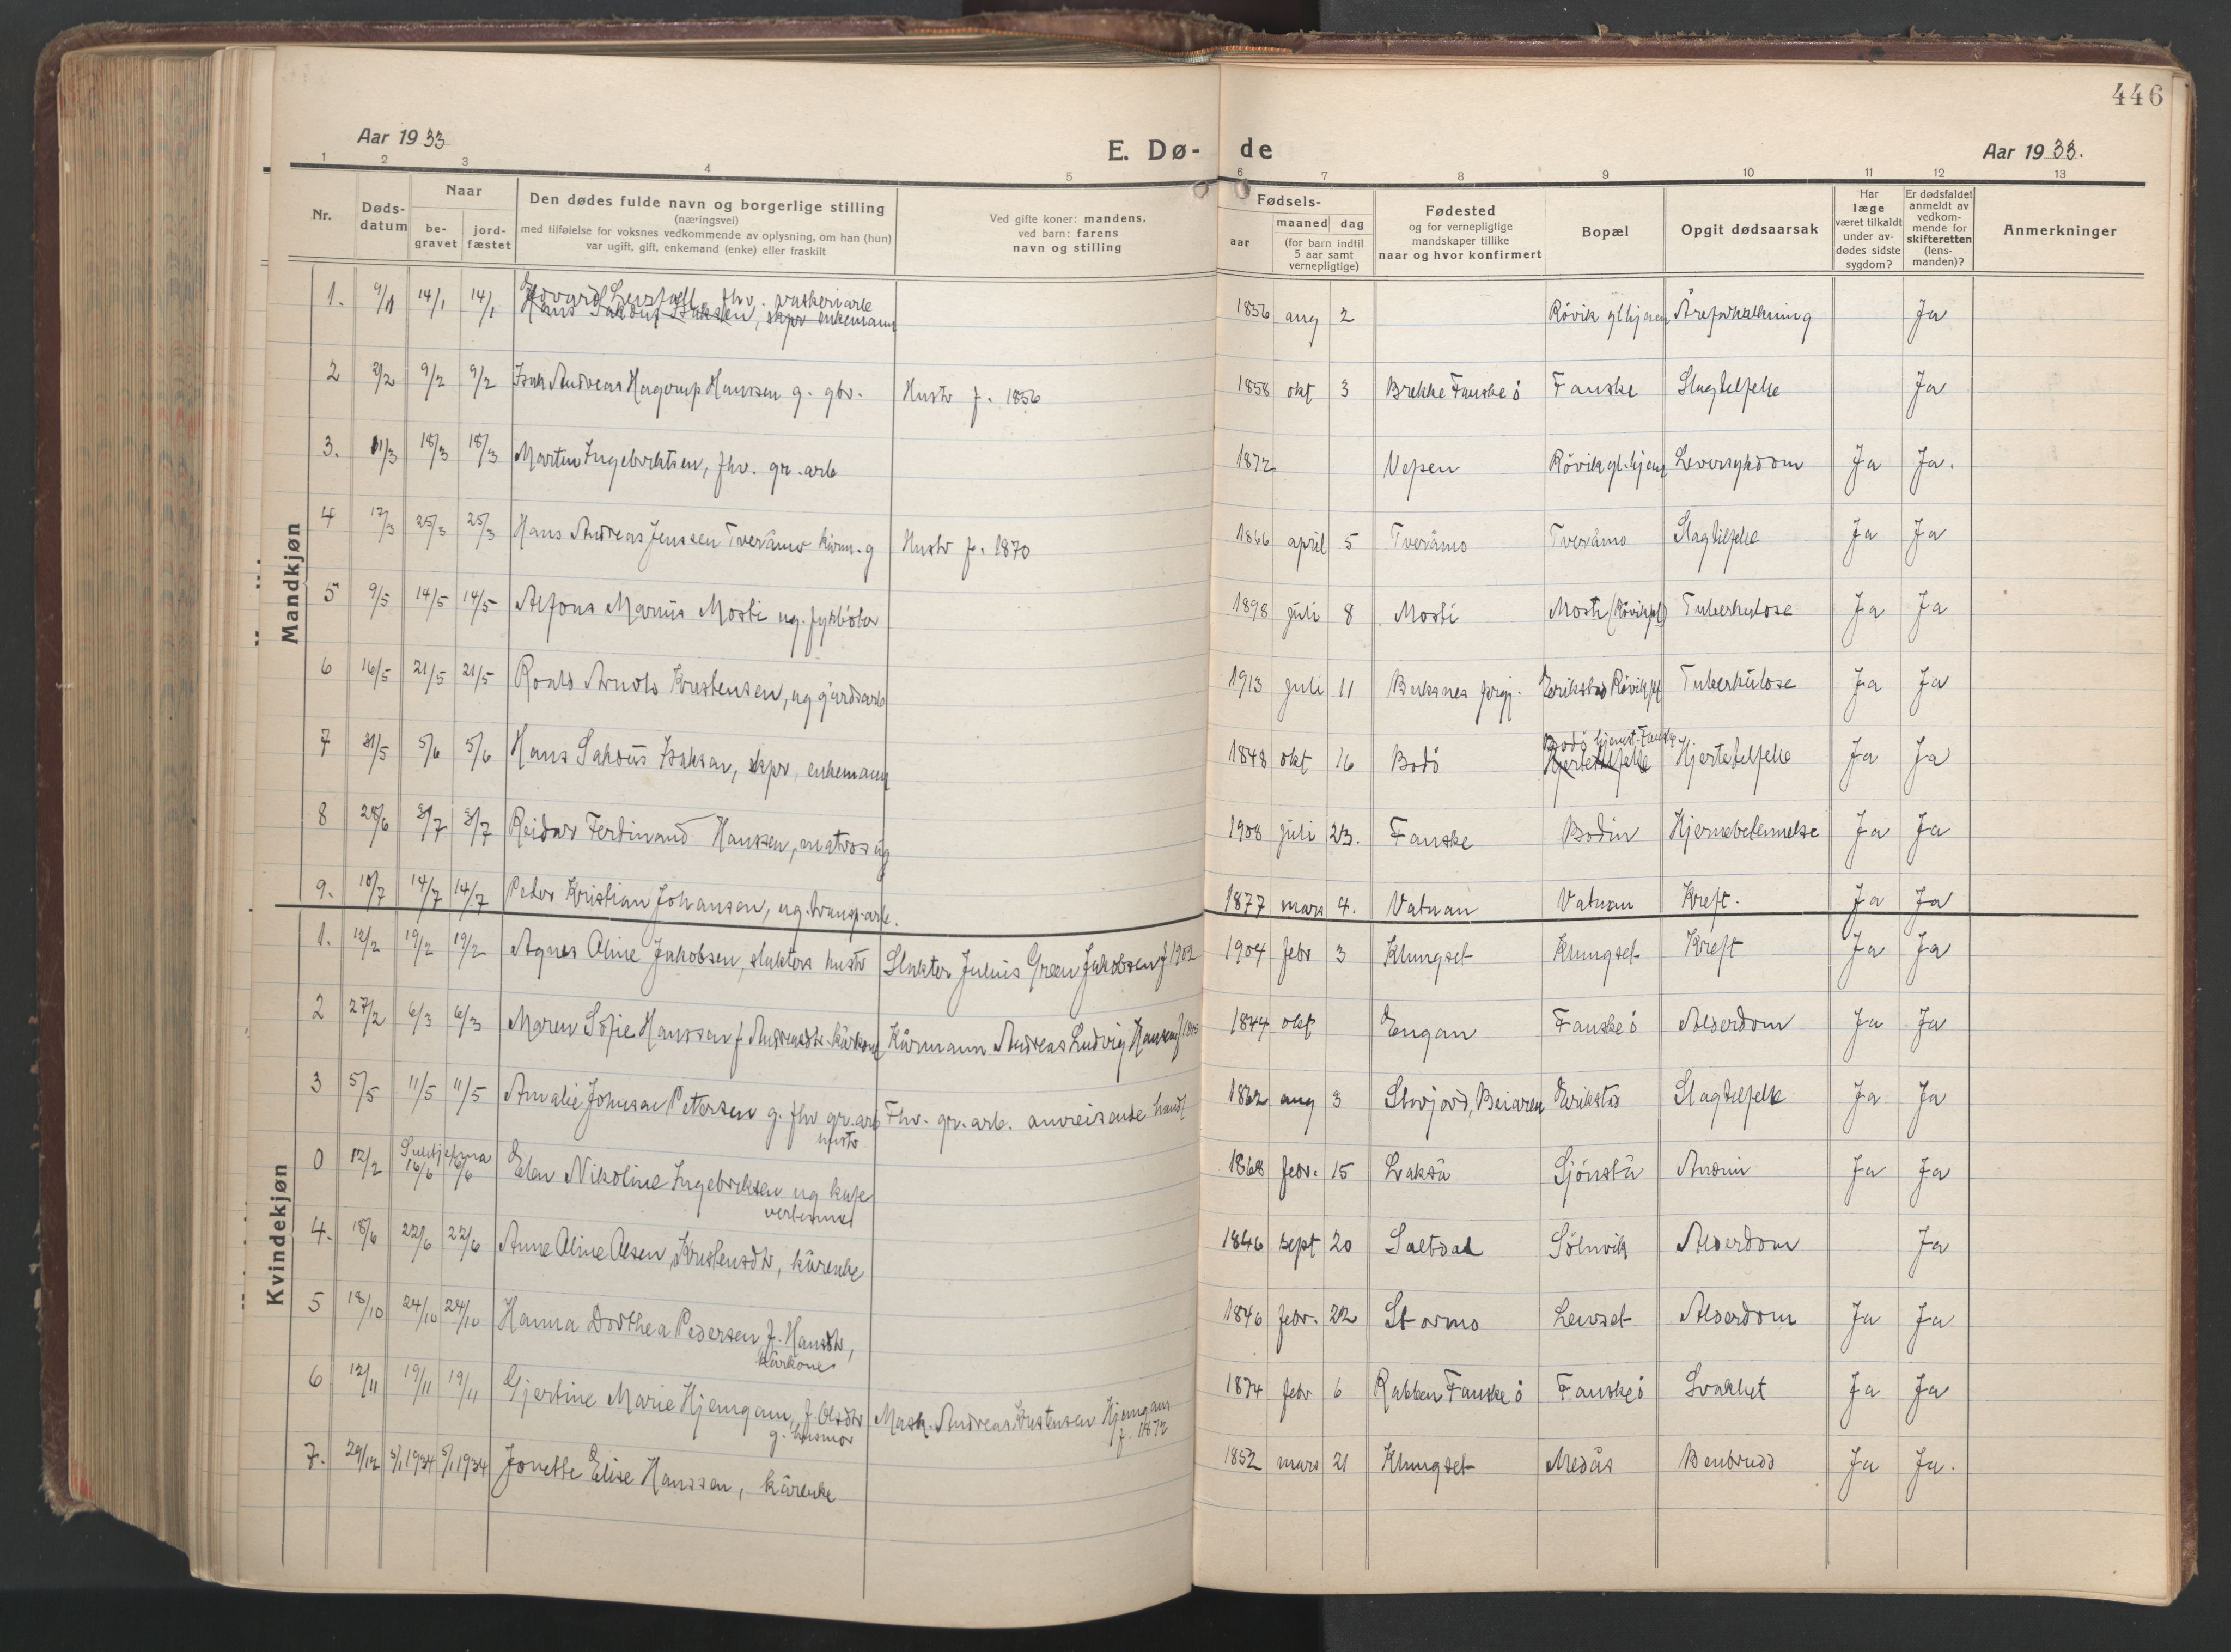 446
Aar 1933
E. Dø-de
Aar 1933.
1 2 3 4 5 6 7 8 9 10 11 12 13
Nr.
Døds-
datum
Naar
be-
gravet
jord-
fæstet
Den dødes fulde navn og borgerlige stilling
(næringsvei)
med tilføielse for voksnes vedkommende av oplysning, om han (hun)
var ugift, gift, enkemand (enke) eller fraskilt
Ved gifte koner: mandens,
ved barn: farens
navn og stilling
Fødsels-
aar
maaned dag
(for barn indtil
5 aar samt
vernepligtige)
Fødested
og for vernepligtige
mandskaper tillike
naar og hvor konfirmert
Bopæl
Opgit dødsaarsak
Har
læge
været tilkaldt
under av-
dødes sidste
sygdom?
Er dødsfaldet
anmeldt av
vedkom-
mende for
skifteretten
(lens-
manden)?
Anmerkninger
Mandkjøn
1. 14/1 14/1 Edvard fhv.
Hans Sakous Isaksen, skpr enkemann
1856 aug 2 Røvik glhjem Åreforkalkning Ja
2 2/2 9/2 9/2 Isak Andreas Hagerup Hanssen g. gbr. Hustr f. 1856 1858 okt 3 Brekke Fauske ö Fauske Slagtilfelle Ja
3. 11/3 18/3 18/3 Martin Ingebriktsen, fhv. gr. arb 1872 Vefsn Røvik gl.hjem Leversykdom Ja Ja.
4 17/3 25/3 25/3 Hans Andreas Jenssen Tveråmo kårm. g Hustr f. 1870 1866 april 5 Tveråmo Tveråmo Slagtilfelle Ja Ja
5 9/5 14/5 14/5 Alfons Marius Mosti ug. fyrböter 1898 juli 8 Mosti Mosti (Røvik pl) Tuberkulose Ja Ja
6 16/5 21/5 21/5 Roald Arnold Kristensen, ug gårdsarb 1913 juli 11 Buksnes prgj. Erikstad Røvik pl Tuberkulose Ja Ja
7 31/5 5/6 5/6 Hans Sakous Isaksen, skpr, enkemann 1848 okt 16 Bodö Bodö hjemst. Fauske Hjertetilfelle Ja Ja
Hjertetilfelle
8 28/6 3/7 3/7 Reidar Ferdinand Hanssen, matros ug 1908 juli 23. Fauske Bodin Hjernebetennelse Ja Ja
9. 10/7 14/7 14/7 Peder Kristian Johansen, ug. transp.arb. 1877 mars 4. Vatnan Vatnan Kreft. Ja Ja
Kvindekjøn
1. 12/2 19/2 19/2 Agnes Oline Jakobsen, slakters hustr Slakter Julius Green Jakobsen f 1902 1904 febr 3 Klungset Klungset Kreft Ja Ja
2 27/2 6/3 6/3 Maren Sofie Hanssen f Andreasdtr. kårkone Kårmann Andreas Ludvig Hanssen f 1844 okt Engan Fauske ö Alderdom Ja Ja
3 5/5 11/5 11/5 Amalie Johnsen Petersen g. fhv gr.arb Fhv. gr. arb. omreisende handl 1862 aug 3 Storjord, Beiaren Erikstad Slagtilfelle Ja Ja
hustr
0 12/2 Sulitjelma
16/6 16/6 Elen Nikoline Ingebriktsen ug kafe 1868 febr. 15 Lakså Sjönstå Anemi Ja Ja
vertinne
4. 18/6 22/6 22/6 Anne Oline Olsen, Kristensdtr, kårenke 1846 sept 20 Saltdal Sölnvik Alderdom Ja
5 18/10 24/10 24/10 Hanna Dorthea Pedersen f. Hansdtr, 1846 febr. 22 Stormo Leivset Alderdom Ja Ja
kårkone
6 12/11 19/11 19/11 Gjertine Marie Hjemgam, f. Olsdtr Mask. Andreas Kristensen Hjemgam 1874 febr 6 Rabben Fauske ö Fauske ö Svakhet Ja Ja
g. husmor f. 1872
7. 29/12 5/1 1934 5/1 1934 Jonette Elise Hanssen, kårenke 1852 mars 21 Klungset Medås Benbrudd Ja Ja.